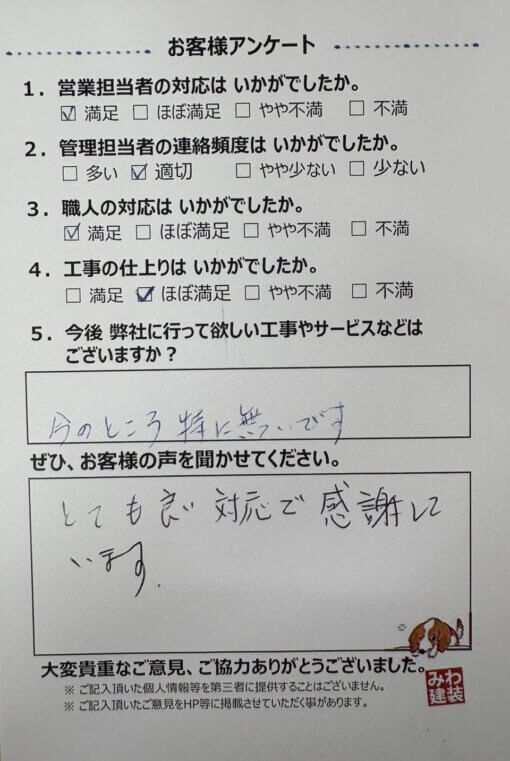 お客様アンケート
1．営業担当者の対応は いかがでしたか。
☑ 満足 ☐ ほぼ満足 ☐ やや不満 ☐ 不満
2．管理担当者の連絡頻度は いかがでしたか。
☐ 多い ☑ 適切 ☐ やや少ない ☐ 少ない
3．職人の対応は いかがでしたか。
☑ 満足 ☐ ほぼ満足 ☐ やや不満 ☐ 不満
4．工事の仕上りは いかがでしたか。
☐ 満足 ☑ ほぼ満足 ☐ やや不満 ☐ 不満
5．今後 弊社に行って欲しい工事やサービスなどは
ございますか？
今のところ 特に無いです
ぜひ、お客様の声を聞かせてください。
とても良い対応で感謝して
います.
大変貴重なご意見、ご協力ありがとうございました。
※ ご記入頂いた個人情報等を第三者に提供することはございません。
※ ご記入頂いたご意見をHP等に掲載させていただく事があります。
みわ
建装